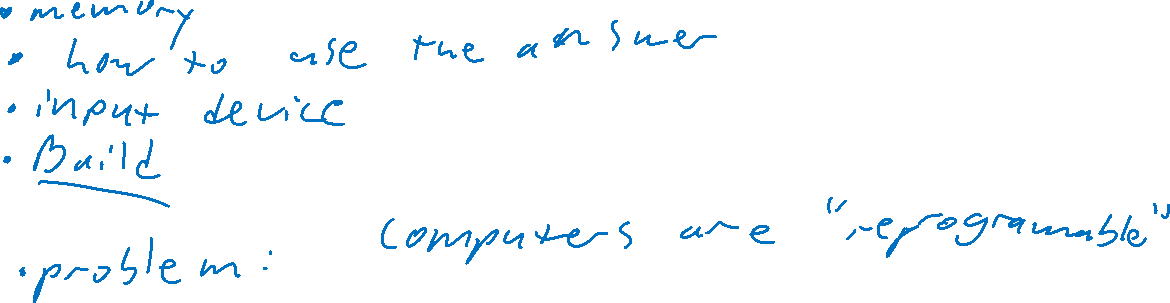 • memory
• how to use the answer
• input device
• Build
• problem: computers are "reprogramable"